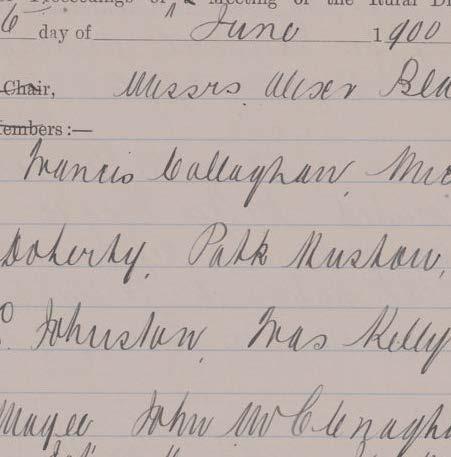 Proceedings of a Meeting of the Rural Di
6 day of June 1900
Chair, Messrs Alexr Bla
Members:—
Francis Callaghan, Mic
Doherty, Patk Rushow,
Johnston, Fras Kelly
Magee John McClenagh